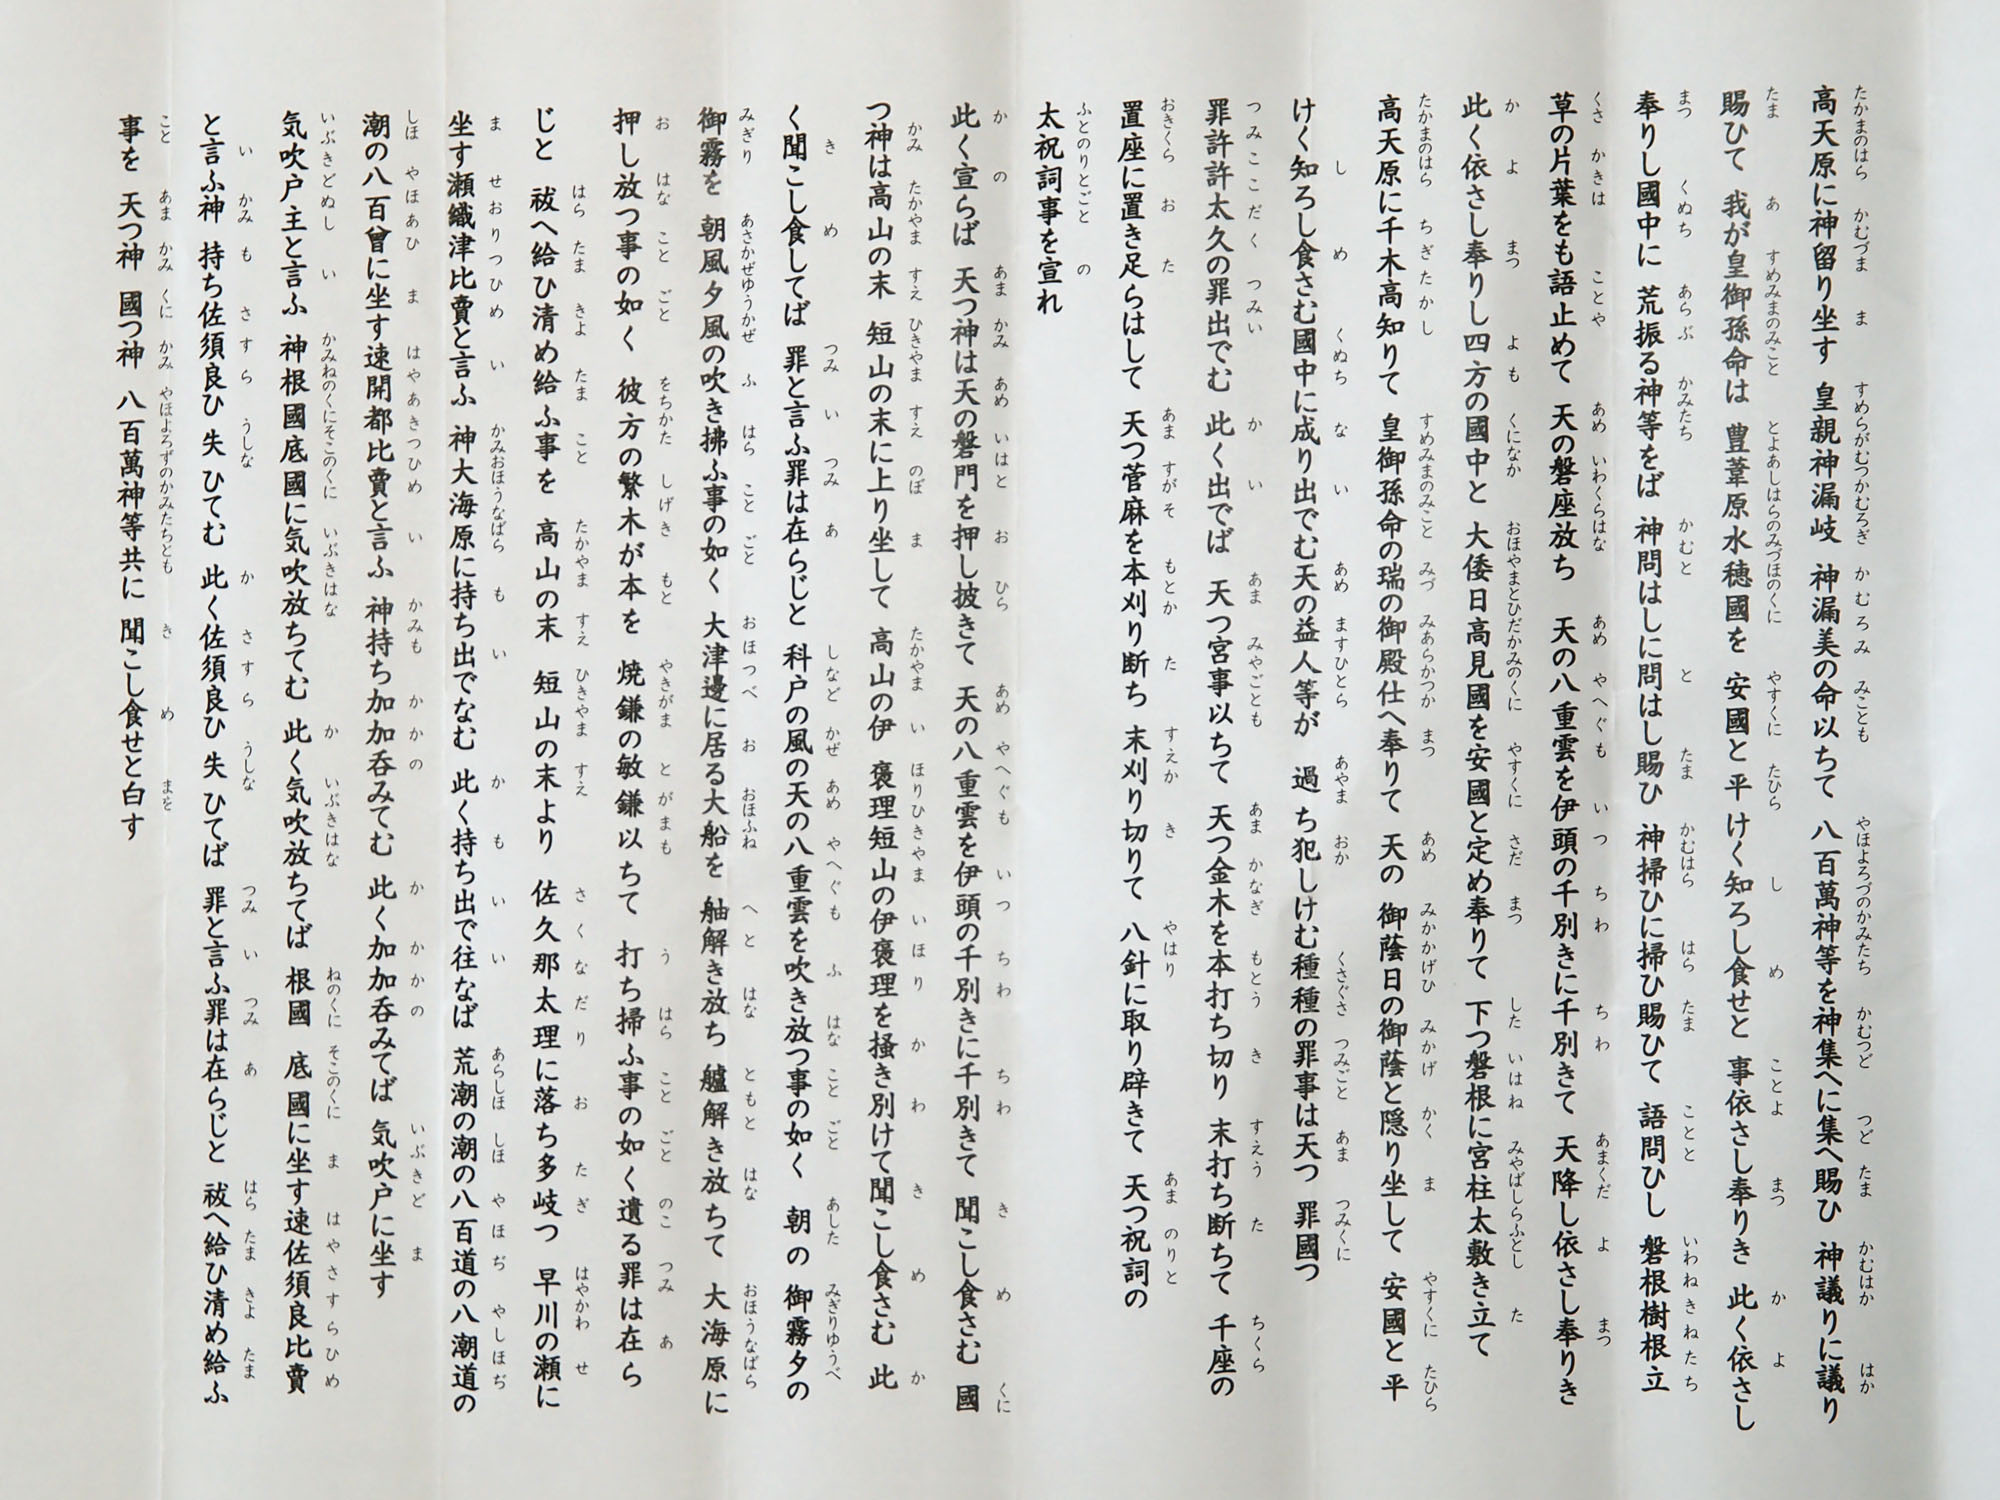 高天原に神留り坐す 皇親神漏岐 神漏美の命以ちて 八百萬神等を神集へに集へ賜ひ 神議りに議り
賜ひて 我が皇御孫命は 豊葦原水穂國を 安國と平けく知ろし食せと 事依さし奉りき 此く依さし
奉りし國中に 荒振る神等をば 神問はしに問はし賜ひ 神掃ひに掃ひ賜ひて 語問ひし 磐根樹根立
草の片葉をも語止めて 天の磐座放ち 天の八重雲を伊頭の千別きに千別きて 天降し依さし奉りき
此く依さし奉りし四方の國中と 大倭日高見國を安國と定め奉りて 下つ磐根に宮柱太敷き立て
高天原に千木高知りて 皇御孫命の瑞の御殿仕へ奉りて 天の 御蔭日の御蔭と隠り坐して 安國と平
けく知ろし食さむ國中に成り出でむ天の益人等が 過ち犯しけむ種種の罪事は天つ 罪國つ
罪許許太久の罪出でむ 此く出でば 天つ宮事以ちて 天つ金木を本打ち切り 末打ち断ちて 千座の
置座に置き足らはして 天つ菅麻を本刈り断ち 末刈り切りて 八針に取り辟きて 天つ祝詞の
太祝詞事を宣れ
此く宣らば 天つ神は天の磐門を押し披きて 天の八重雲を伊頭の千別きに千別きて 聞こし食さむ 國
つ神は高山の末 短山の末に上り坐して 高山の伊 褒理短山の伊褒理を掻き別けて聞こし食さむ 此
く聞こし食してば 罪と言ふ罪は在らじと 科戸の風の天の八重雲を吹き放つ事の如く 朝の 御霧夕の
御霧を 朝風夕風の吹き拂ふ事の如く 大津邊に居る大船を 舳解き放ち 艫解き放ちて 大海原に
押し放つ事の如く 彼方の繁木が本を 焼鎌の敏鎌以ちて 打ち掃ふ事の如く遺る罪は在ら
じと 祓へ給ひ清め給ふ事を 高山の末 短山の末より 佐久那太理に落ち多岐つ 早川の瀬に
坐す瀬織津比賣と言ふ 神大海原に持ち出でなむ 此く持ち出で往なば 荒潮の潮の八百道の八潮道の
潮の八百曾に坐す速開都比賣と言ふ 神持ち加加呑みてむ 此く加加呑みてば 気吹戸に坐す
気吹戸主と言ふ 神根國底國に気吹放ちてむ 此く気吹放ちてば 根國 底國に坐す速佐須良比賣
と言ふ神 持ち佐須良ひ失ひてむ 此く佐須良ひ失ひてば 罪と言ふ罪は在らじと 祓へ給ひ清め給ふ
事を 天つ神 國つ神 八百萬神等共に 聞こし食せと白す